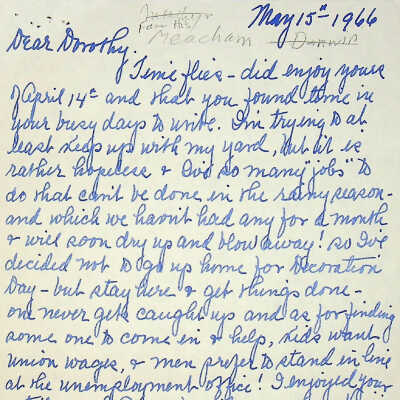 May 15th 1966
Fam Hist
Meacham
Dear Dorothy.
Time flies - did enjoy yours
of April 14th and that you found time in
your busy days to write. I'm trying to at
least keep up with my yard, but it is
rather hopeless & I've so many "jobs" to
do that can't be done in the rainy season -
and which we havn't had any for a month
& will soon dry up and blow away! so I've
decided not to go up home for Decoration
Day - but stay here & get things done -
one never gets caught up and as for finding
some one to come in & help, kids want
union wages, & men prefer to stand in line
at the unemployment office! I enjoyed your